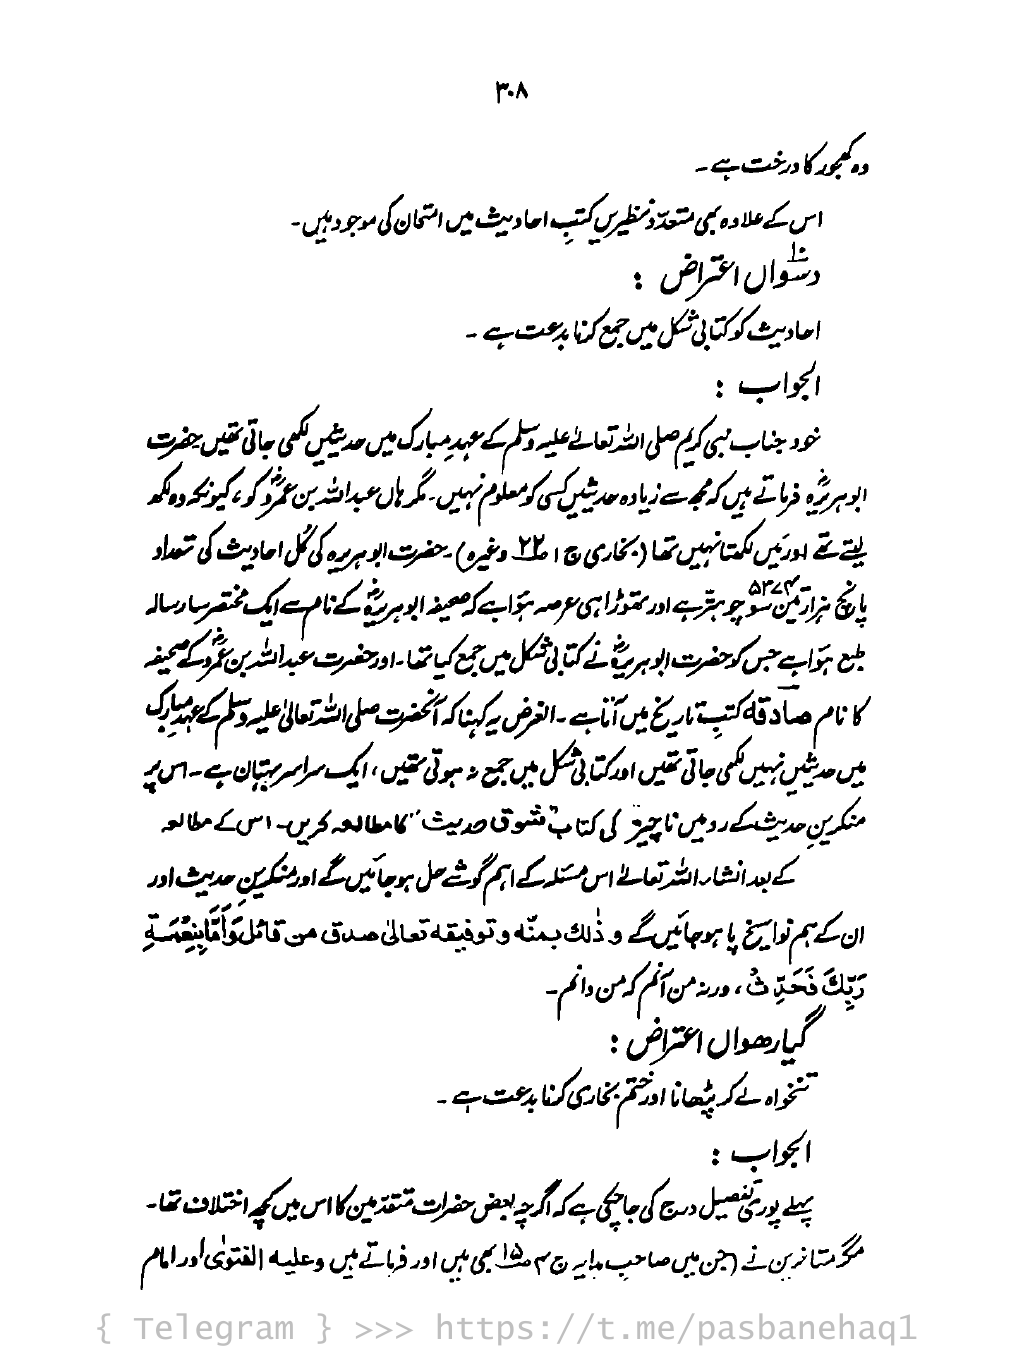 ۳۰۸
وہ کھجور کا درخت ہے۔
اس کے علاوہ بھی متعدّد نظیریں کتبِ احادیث میں امتحان کی موجود ہیں۔
دسواں اعتراض :
احادیث کو کتابی شکل میں جمع کرنا بدعت ہے۔
الجواب :
خود جناب نبی کریم صلی اللہ تعالےٰ علیہ وسلم کے عہدِ مبارک میں حدیثیں لکھی جاتی تھیں حضرت
ابوہریرہؓ فرماتے ہیں کہ مجھ سے زیادہ حدیثیں کسی کو معلوم نہیں۔ مگر ہاں عبداللہ بن عمروؓ کو، کیونکہ وہ لکھ
لیتے تھے اور مَیں لکھتا نہیں تھا (بخاری ج ۱ ص۲۲ وغیرہ)۔ حضرت ابوہریرہ کی کُل احادیث کی تعداد
پانچ ہزار تین سو چوہتّر ۵۳۷۴ ہے اور تھوڑا ہی عرصہ ہؤا ہے کہ صحیفہ ابوہریرہؓ کے نام سے ایک مختصر سا رسالہ
طبع ہؤا ہے جس کو حضرت ابوہریرہؓ نے کتابی شکل میں جمع کیا تھا۔ اور حضرت عبداللہ بن عمروؓ کے صحیفہ
کا نام صادقہ کتبِ تاریخ میں آتا ہے۔ الغرض یہ کہنا کہ آنحضرت صلی اللہ تعالیٰ علیہ وسلم کے عہدِ مبارک
میں حدیثیں نہیں لکھی جاتی تھیں اور کتابی شکل میں جمع نہ ہوتی تھیں، ایک سراسر بہتان ہے۔ اس پر
منکرینِ حدیث کے رد میں ناچیز کی کتاب "شوق حدیث" کا مطالعہ کریں۔ اس کے مطالعہ
کے بعد انشاء اللہ تعالےٰ اس مسئلہ کے اہم گوشے حل ہو جائیں گے اور منکرینِ حدیث اور
ان کے ہم نوا سیخ پا ہو جائیں گے و ذٰلك بمنّه و توفيقه تعالىٰ صدق من قائل وَأَمَّا بِنِعْمَةِ
رَبِّكَ فَحَدِّثْ، ورنہ من آنم کہ من دانم۔
گیارھواں اعتراض :
تنخواہ لے کر پڑھانا اور ختم بخاری کرنا بدعت ہے۔
الجواب :
پہلے پوری تفصیل درج کی جا چکی ہے کہ اگرچہ بعض حضرات متقدّمین کا اس میں کچھ اختلاف تھا۔
مگر متاخرین نے (جن میں صاحبِ ہدایہ ج ۳ ص۱۵ بھی ہیں اور فرماتے ہیں وعلیہ الفتوٰی اور امام
{ Telegram } >>> https://t.me/pasbanehaq1